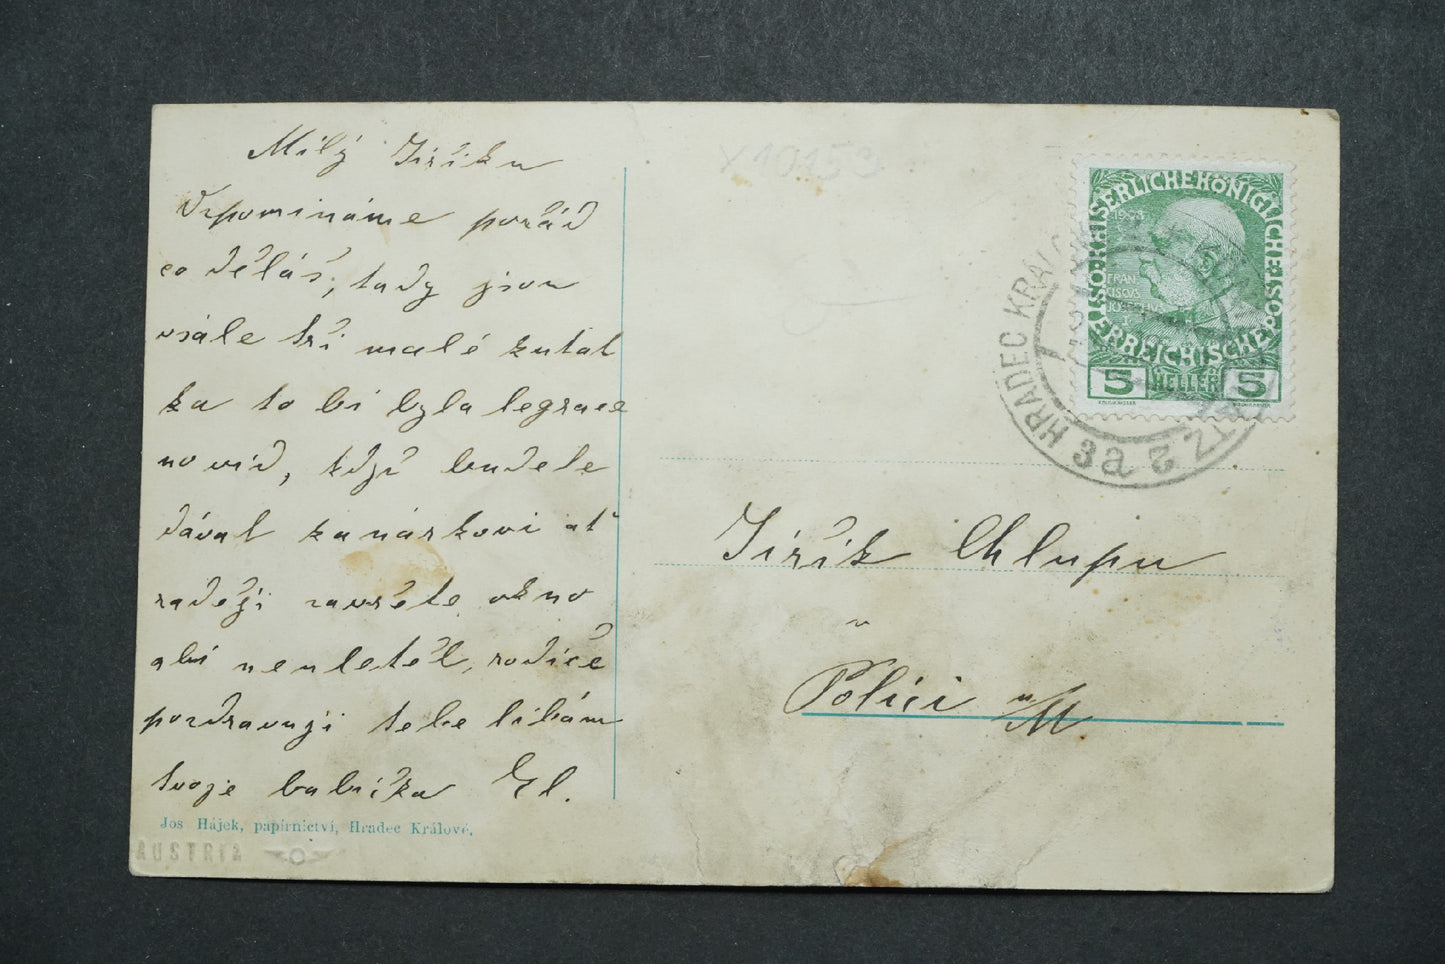 Milý Jiříku
Vzpomínáme pořád
co děláš, tady jsou
stále tři malé kuťát
ka to bi byla legrace
no viď, když budete
dávat kanárkovi ať
raději zavřete okno
abi neuletěl, rodiče
pozdravuji tebe líbám
tvoje babička El.
Jos Hájek, papírnictví, Hradec Králové.
AUSTRIA
X10153
KAISERLICHE KÖNIGLICHE ÖSTERREICHISCHE POST
1908
FRAN
CISCVS
JOSEPH
I
5 HELLER 5
HRADEC KRÁLO
3a
Jiřík Chlupu
v
Polici n/M